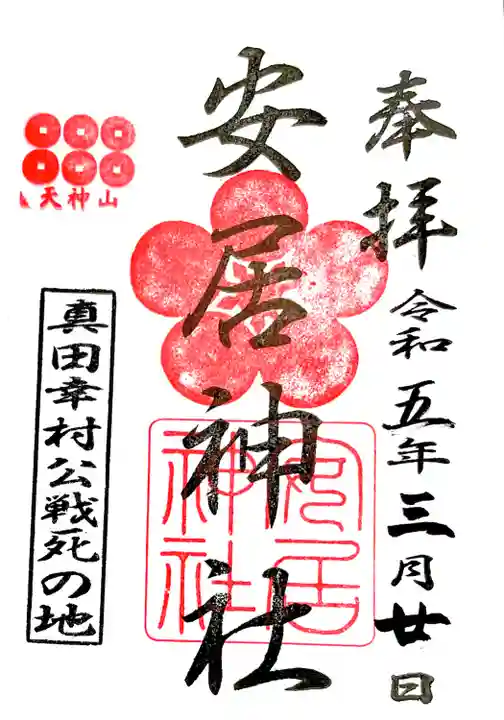 奉拝
令和五年三月廿日
安居神社
安居
神社
天神山
真田幸村公戦死の地